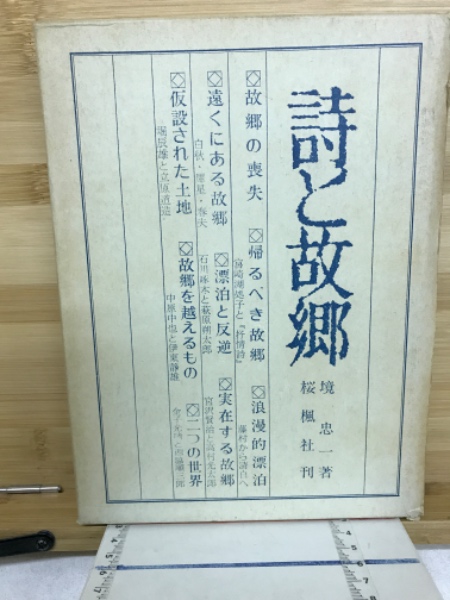 詩と故郷
境忠一著
桜楓社刊
故郷の喪失
帰るべき故郷
宮崎湖処子と『抒情詩』
浪漫的漂泊
藤村から清白へ
遠くにある故郷
白秋・犀星・春夫
漂泊と反逆
石川啄木と萩原朔太郎
実在する故郷
宮沢賢治と高村光太郎
仮設された土地
堀辰雄と立原道造
故郷を越えるもの
中原中也と伊東静雄
二つの世界
金子光晴と西脇順三郎